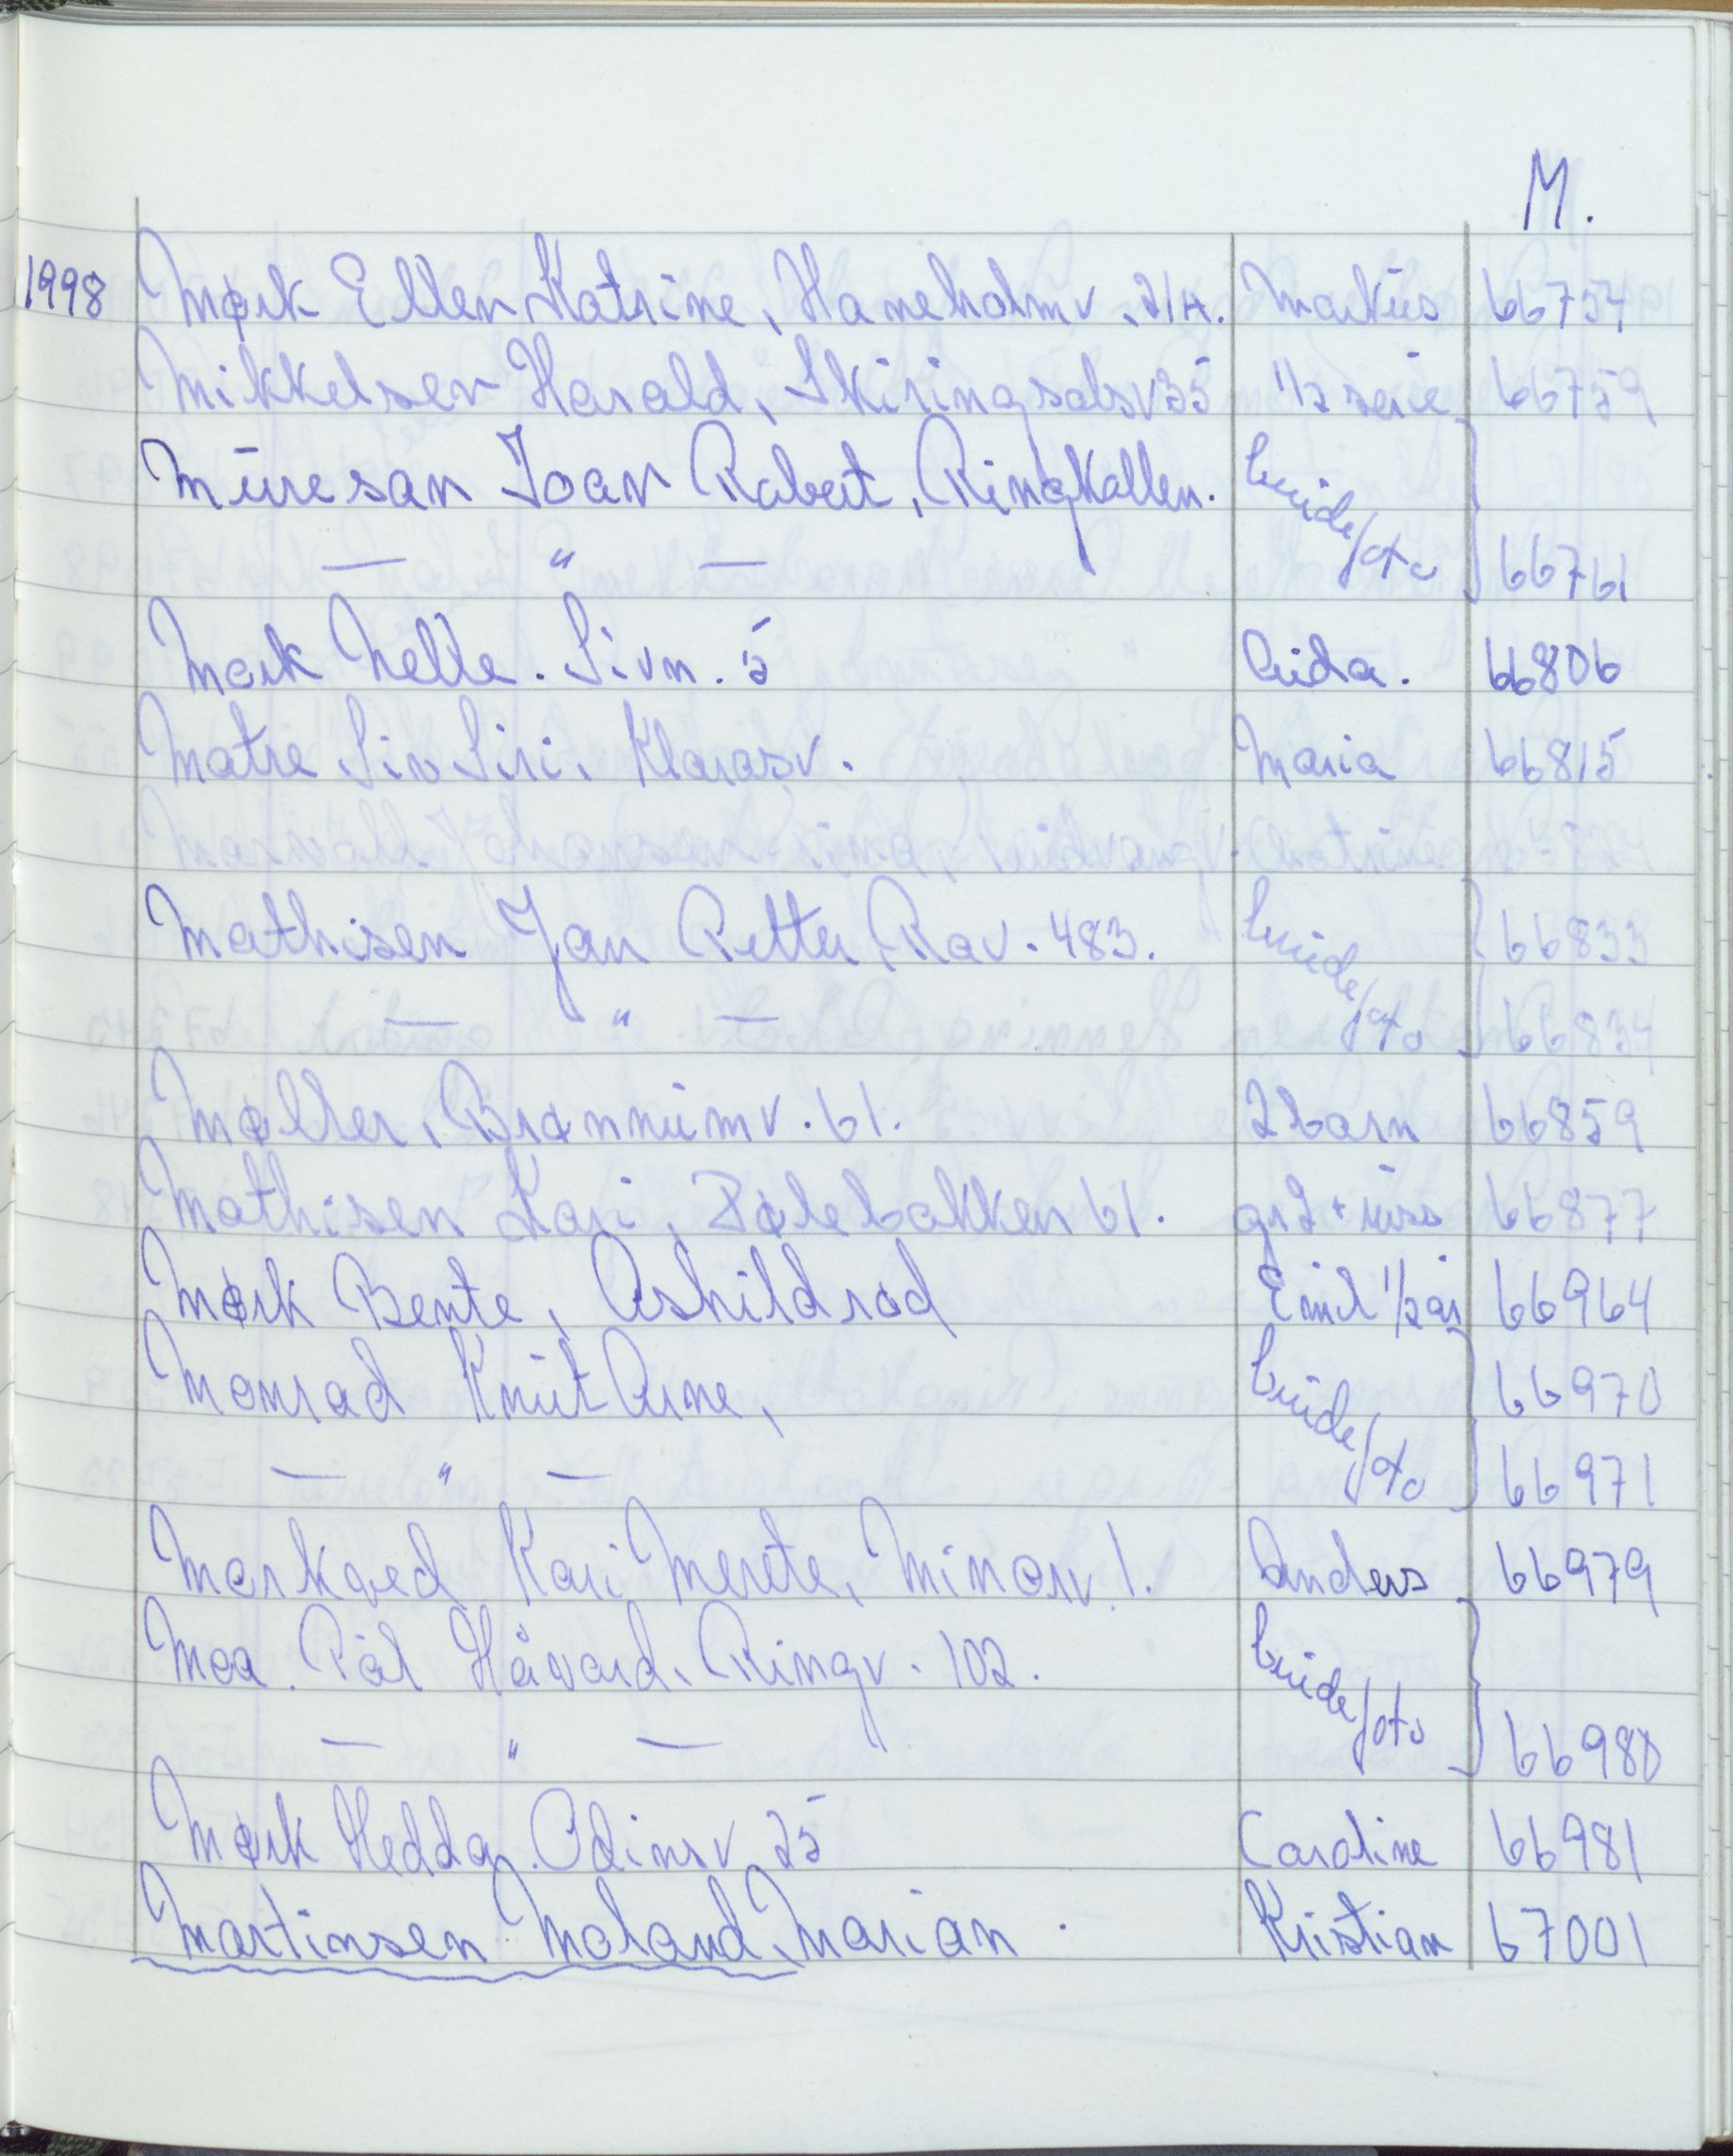 M.
1998 Mørk Ellen Katrine, Haneholmv. 21A. Markus 66754
Mikkelsen Harald, Skiringsalsv 35 1/2 serie 66759
Muresan Ioan Robert, Ringkollen. brude
— " — foto 66761
Mørk Nelle. Sivn. 5 Aida. 66806
Matre Siv Siri, Klarasv. Maria 66815
Mathisen Jan Petter, Rav. 483. brude 66833
— " — foto 66834
Møller, Brønnumv. 61. 2 barn 66859
Mathisen Kari, Pølebakken 61. gr 2 + 66877
Mørk Bente, Askildrød Emil 1/2 år 66964
Monrad Knut Arne, brude 66970
— " — foto 66971
Markved Kari Merete, Minorv 1. Anders 66979
Moa. Pål Håvard. Ringv. 102. brude
— " — foto 66980
Mørk Hedda. Odinsv 25 Caroline 66981
Martinsen Moland, Marian. Kristian 67001